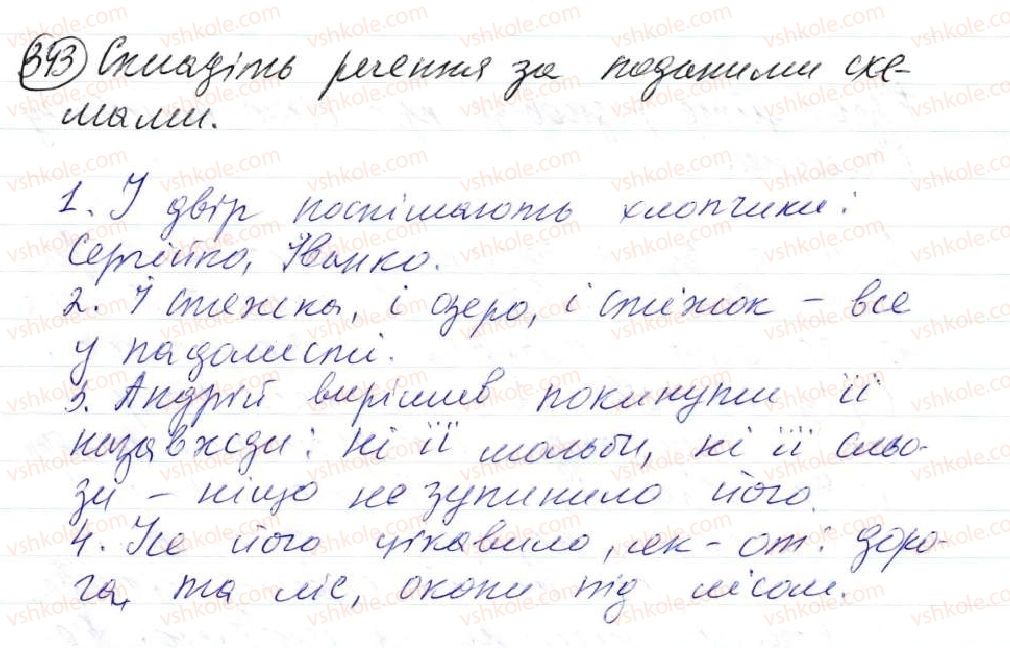 393 Складіть речення за поданими схе-
мами.
1. У двір поспішають хлопчики:
Сергійко, Іванко.
2. І стежка, і озеро, і сніжок - все
у падолисті.
3. Андрій вирішив покинути її
назавжди: ні її мольби, ні її сльо-
зи - ніщо не зупинило його.
4. Усе його цікавило, як-от: доро-
га, та ліс, окопи під лісом.